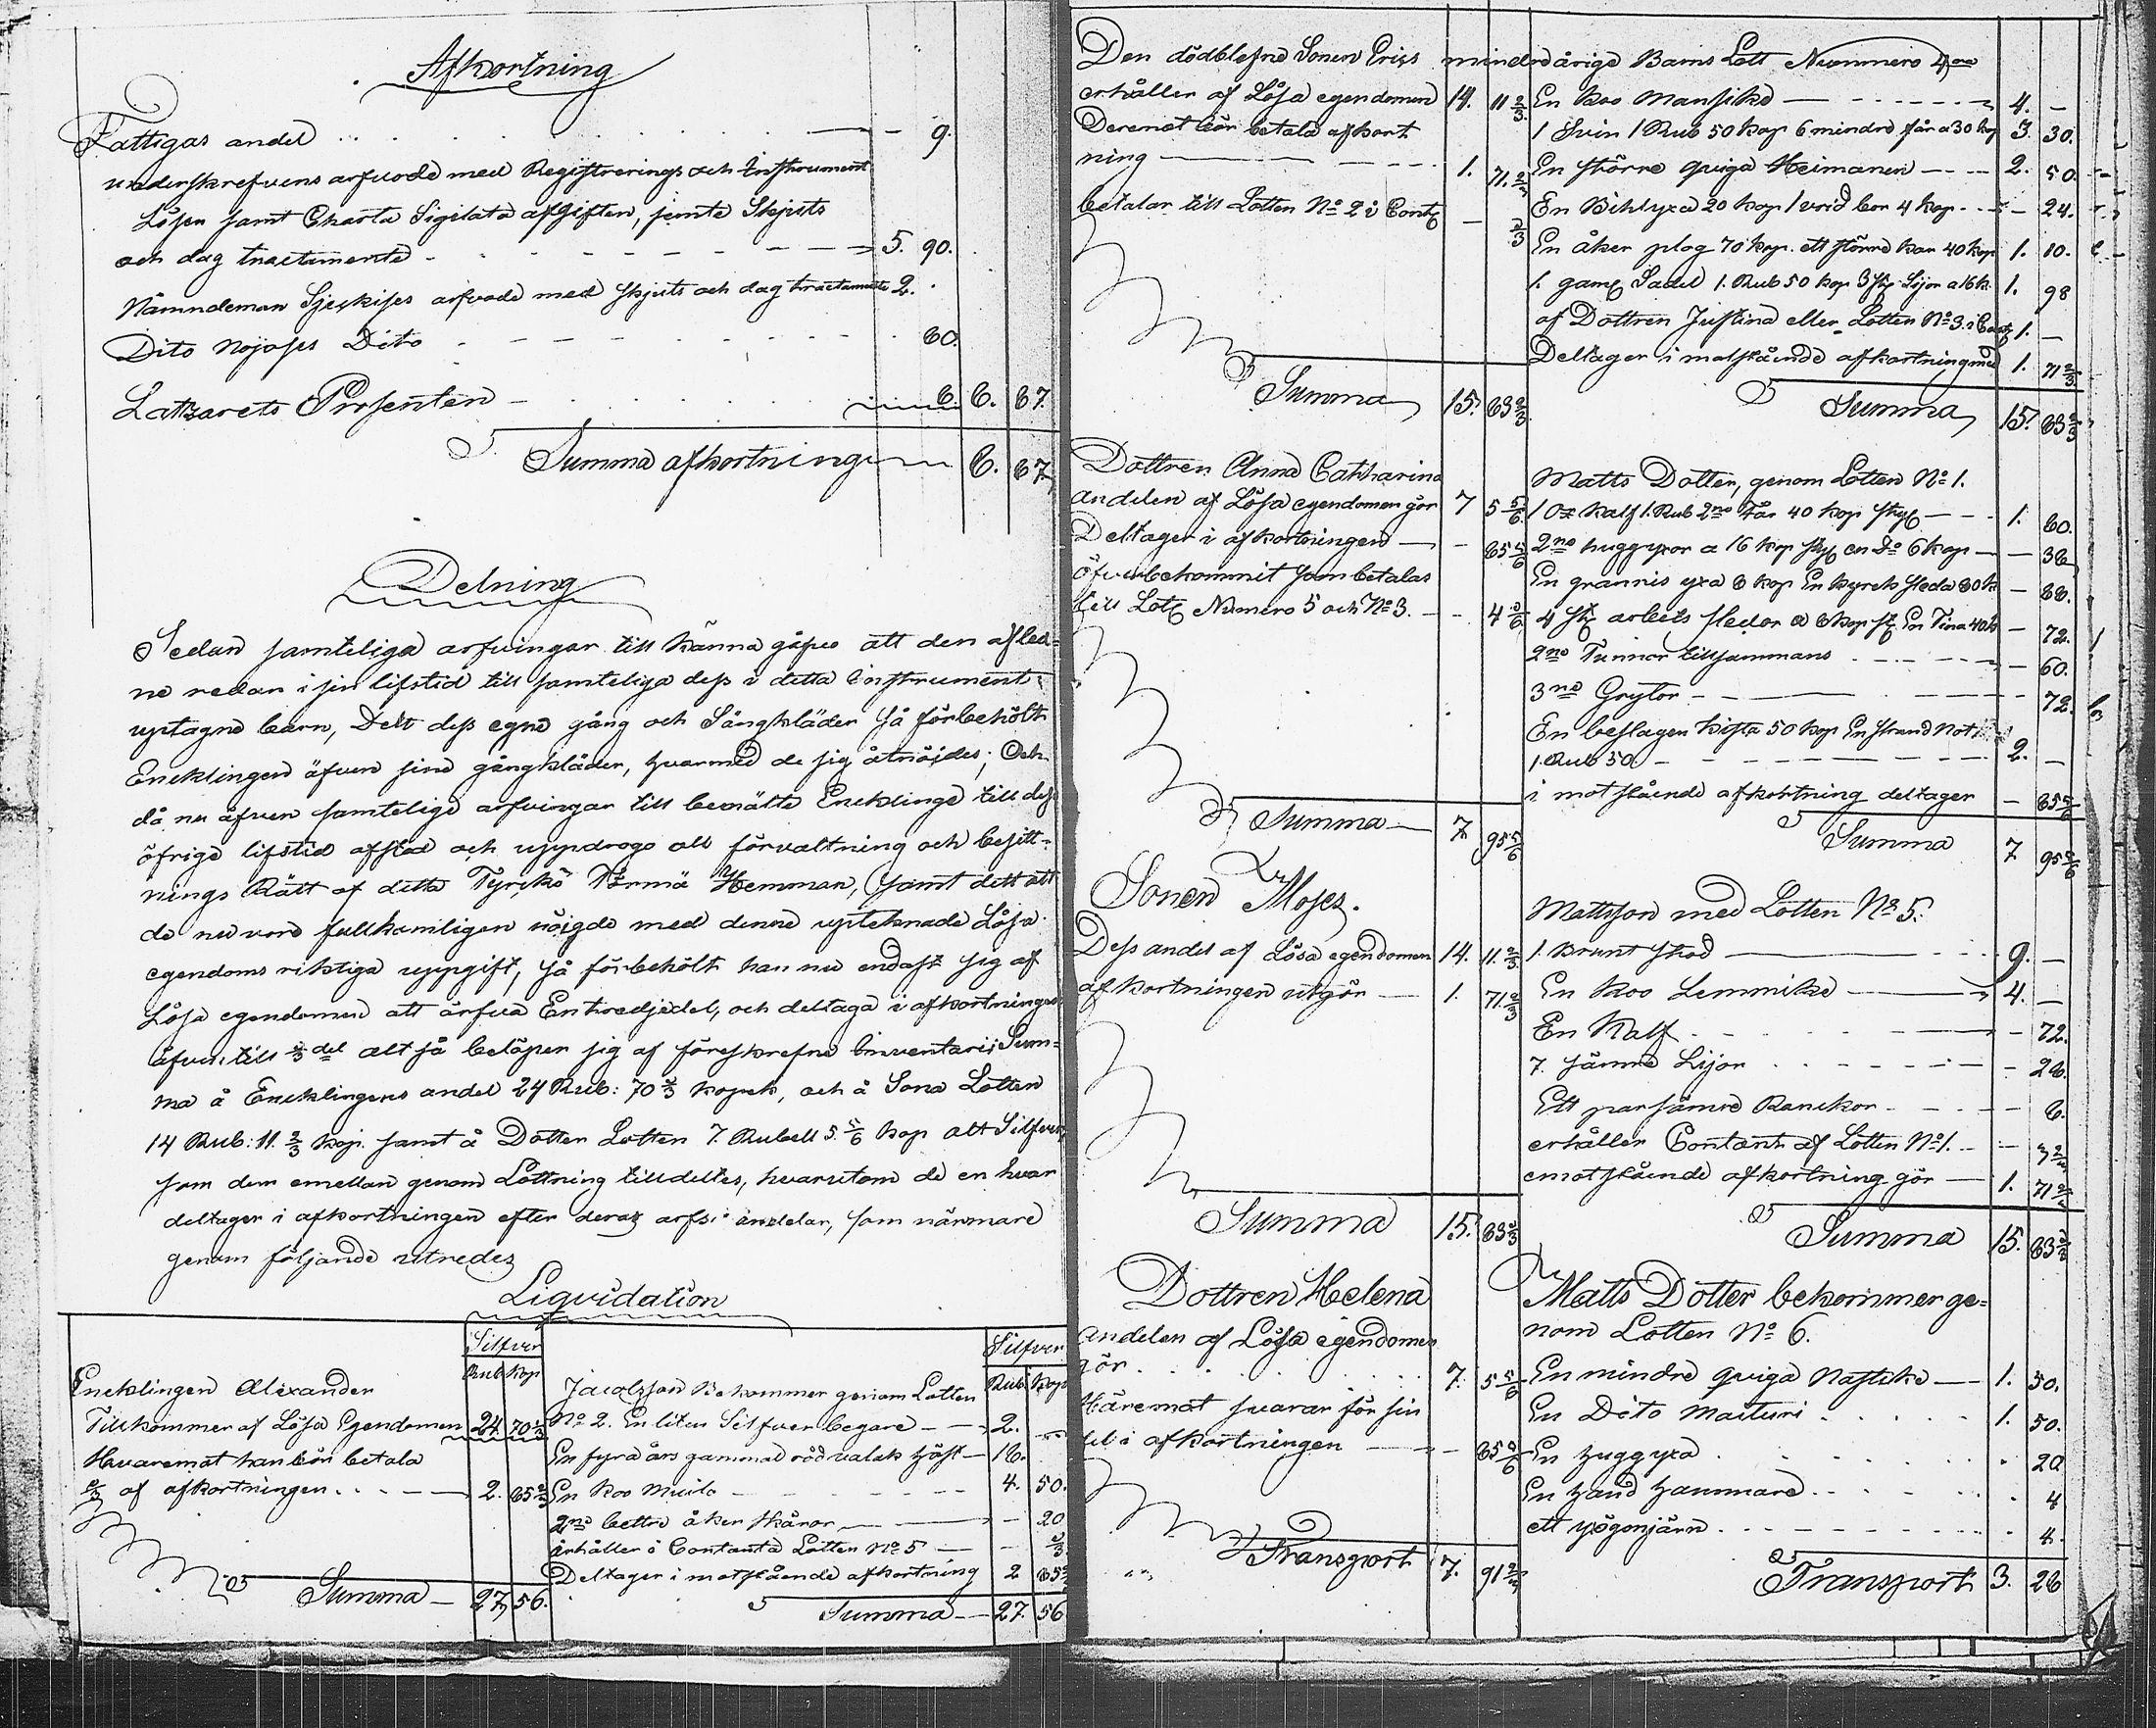 Afkortning
Fattigas andel - 9.
underskrefvens arfvode med Registrerings och Instrument
Lösen samt Charta Sigilata afgiften, jemte Skjuts
och dag tractamente 5. 90.
Nämndeman arfvode med skjuts och dag tractamente 2.
Dito Dito 60.
Lattzarets Prosenten 6. 67.
Summa afkortningen 67
Delning
Sedan samteliga arfvingar till känna gåfvo att den afled-
ne redan i sin lifstid till samteliga dess i detta instrument
uptagne barn, Delt dess egne gång och Sängkläder så förbehölt
Encklingen äfven sine gångkläder, hvarmed de sig åtnöjdes; Och
då nu äfven samtelige arfvingar till bemälte Encklinge till dess
öfrige lifstid afstod och uppdrogo all förvaltning och besitt-
nings Rätt af detta Tyriskö Törmä Hemman, samt dett att
de nu voro fullkomligen nöigde med denne upteknade Lösa
egendoms riktiga uppgift, så förbehölt han nu endast sig af
Lösa egendomen att ärfva En tredjedel, och deltaga i afkortningen
äfven till del alt så belöper sig af föreskrefne Inventarii Sum-
ma å Encklingens andel 24 Rub: 70 kopek, och å Sona Lotten
14 Rub: 11. 2/3 kop. samt å Dotter Lotten 7. Rubell 5. 5/6 kop allt Silfver,
som dem emellan genom Lottning tilldeltes, hvarutom de en hvar
deltager i afkortningen efter deras arfs andelar, som närmare
genom följande utredes
Liquidation
Silfver Silfver
Rub Kop Rub. Kop
Encklingen Alexander
Jacobsson Bekommer genom Lotten
Tillkommer af Lösa Egendomen 24 70
No 2. En liten Silfver begare 2.
Hvaremot han bör betala
En fyra års gammal röd valak häst 16.
af afkortningen 2.
En Koo Muik 4. 50.
2ne bettre åker skäror - 20
erhåller i Contanta Lotten No 5 -
Deltager i motstående afkortning 2
Summa 27 56.
Summa 27. 56
Den dödblefne Sonen Erics mindreårige Barns Lott Nummero 4ra
erhåller af Lösa egendomen 14. 11 2/3
En Koo Mansike 4. -
Deremot bör betala afkort
1 Svin 1 Rub 50 kop 6 mindre får a 30 kop 3. 30.
ning 1. 71. 2/3
En större quiga Heimanen 2. 50.
betalar till Lotten No 2 i Cont - 2/3
En Bihlyxa 20 kop 1 vrid bor 4 kop - 24.
En åker plog 70 kop. ett större kar 40 kop 1. 10.
1. gam Sadel 1. Rub 50 kop 3 st Lijor a 16 k. 1. 98
af Dottren Justina eller Lotten No 3. i Cont 1. -
Deltager i motstående afkortning med 1. 71 2/3
Summa 15. 83 2/3
Summa 15. 83 2/3
Dottren Anna Catharina
Matts Dotter, genom Lotten No 1.
andelen af Lösa egendomen gör 7 5 5/6
1 Ox Kalf 1. Rub 2ne Får 40 kop 1. 80.
Deltager i afkortningen - 85 5/6
2ne huggyxor a 16 kop en Do 6 kop - 38
öfverbekommit som betalas
En grannis yxa 8 kop En kyrck släda 80 k - 88.
till Lot Numero 5 och No 3. - 4
4 st arbets sledor a 8 kop st En Tina 40 k - 72.
2ne Tunnor tillsammans - 60.
3ne Grytor - 72.
En beslagen kista 50 kop En strand Not
1. Rub 50 2. -
i motstående afkortning deltager - 85 5/6
Summa 7 95 5/6
Summa 7 95 5/6
Sonen Moses.
Mattsson med Lotten No 5.
Dess andel af Lösa egendomen 14. 11. 2/3
1. brunt stod 9. -
afkortningen utgör 1. 71 2/3
En Koo Lemmike 4. -
En Kalf - 72.
7. sämre Lijor - 28.
Ett par sämre Ranckor - 8.
erhåller Contant af Lotten No 1. - 3 2/3
emotstående afkortning gör 1. 71 2/3
Summa 15. 83 2/3
Summa 15. 83 2/3
Dottren Helena
Matts Dotter bekommer ge-
nom Lotten No 6.
andelen af Lösa egendomen
gör 7. 5 5/6
En mindre quiga Nastike 1. 50.
Häremot svarar för sin
En Dito Maituri 1. 50.
del i afkortningen - 85 5/6
En huggyxa 20
En hand hammare 4
ett ögonjärn 4.
Transport 7. 91 2/3
Transport 3. 28